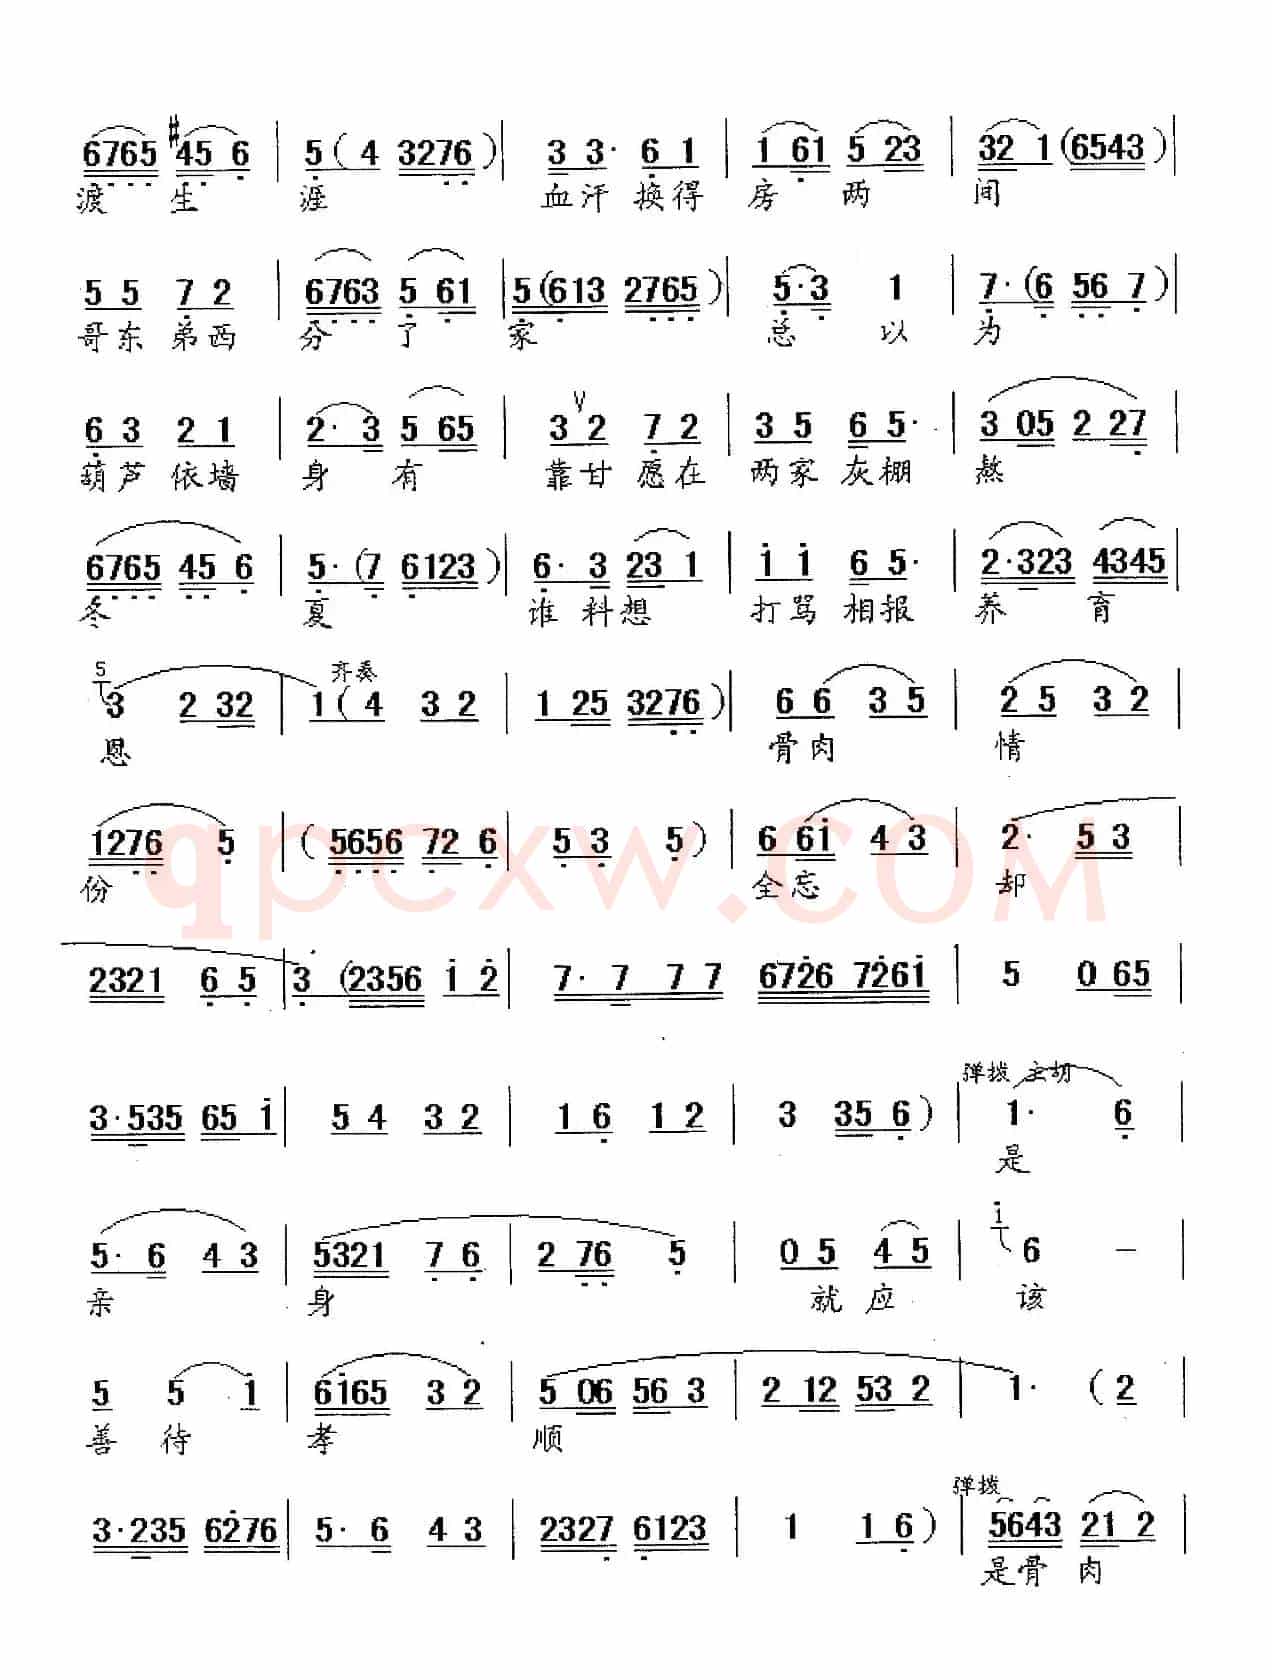 6765 #45 6 | 5 ( 4 3276 ) | 3 3· 6 1 | 1 61 5 23 | 32 1 (6543 ) |
渡 生 涯 血汗 换得 房 两 间
5 5 7 2 | 6763 5 61 | 5 (613 2765 ) | 5·3 1 | 7· (6 56 7 ) |
哥东 弟西 分 了 家 总 以 为
6 3 2 1 | 2· 3 5 65 | 3 V 2 7 2 | 3 5 6 5· | 3 05 2 27 |
葫芦 依墙 身 有 靠甘 愿在 两家 灰棚 熬
6765 45 6 | 5· (7 6123 ) | 6· 3 23 1 | i i 6 5· | 2·323 4345 |
冬 夏 谁 料想 打骂 相报 养 育
5 齐奏
3 2 32 | 1 ( 4 3 2 | 1 25 3276 ) | 6 6 3 5 | 2 5 3 2 |
恩 骨肉 情
1276 5 | ( 5656 72 6 | 5 3 5 ) | 6 6i 4 3 | 2· 5 3
份 全忘 却
2321 6 5 | 3 (2356 i 2 | 7· 7 7 7 | 6726 7261 | 5 0 65 |
3·535 65 i | 5 4 3 2 | 1 6 1 2 | 3 35 6 ) | 1· 6 |
弹拨 主胡
是
5· 6 4 3 | 5321 7 6 | 2 76 5 | 0 5 4 5 | i 6 – |
亲 身 就 应 该
5 5 i | 6i65 3 2 | 5 06 56 3 | 2 12 53 2 | 1· ( 2
善 待 孝 顺
弹拨
3·235 6276 | 5· 6 4 3 | 2327 6123 | 1 1 6 ) | 5643 21 2 |
是骨 肉
qpcxw.com